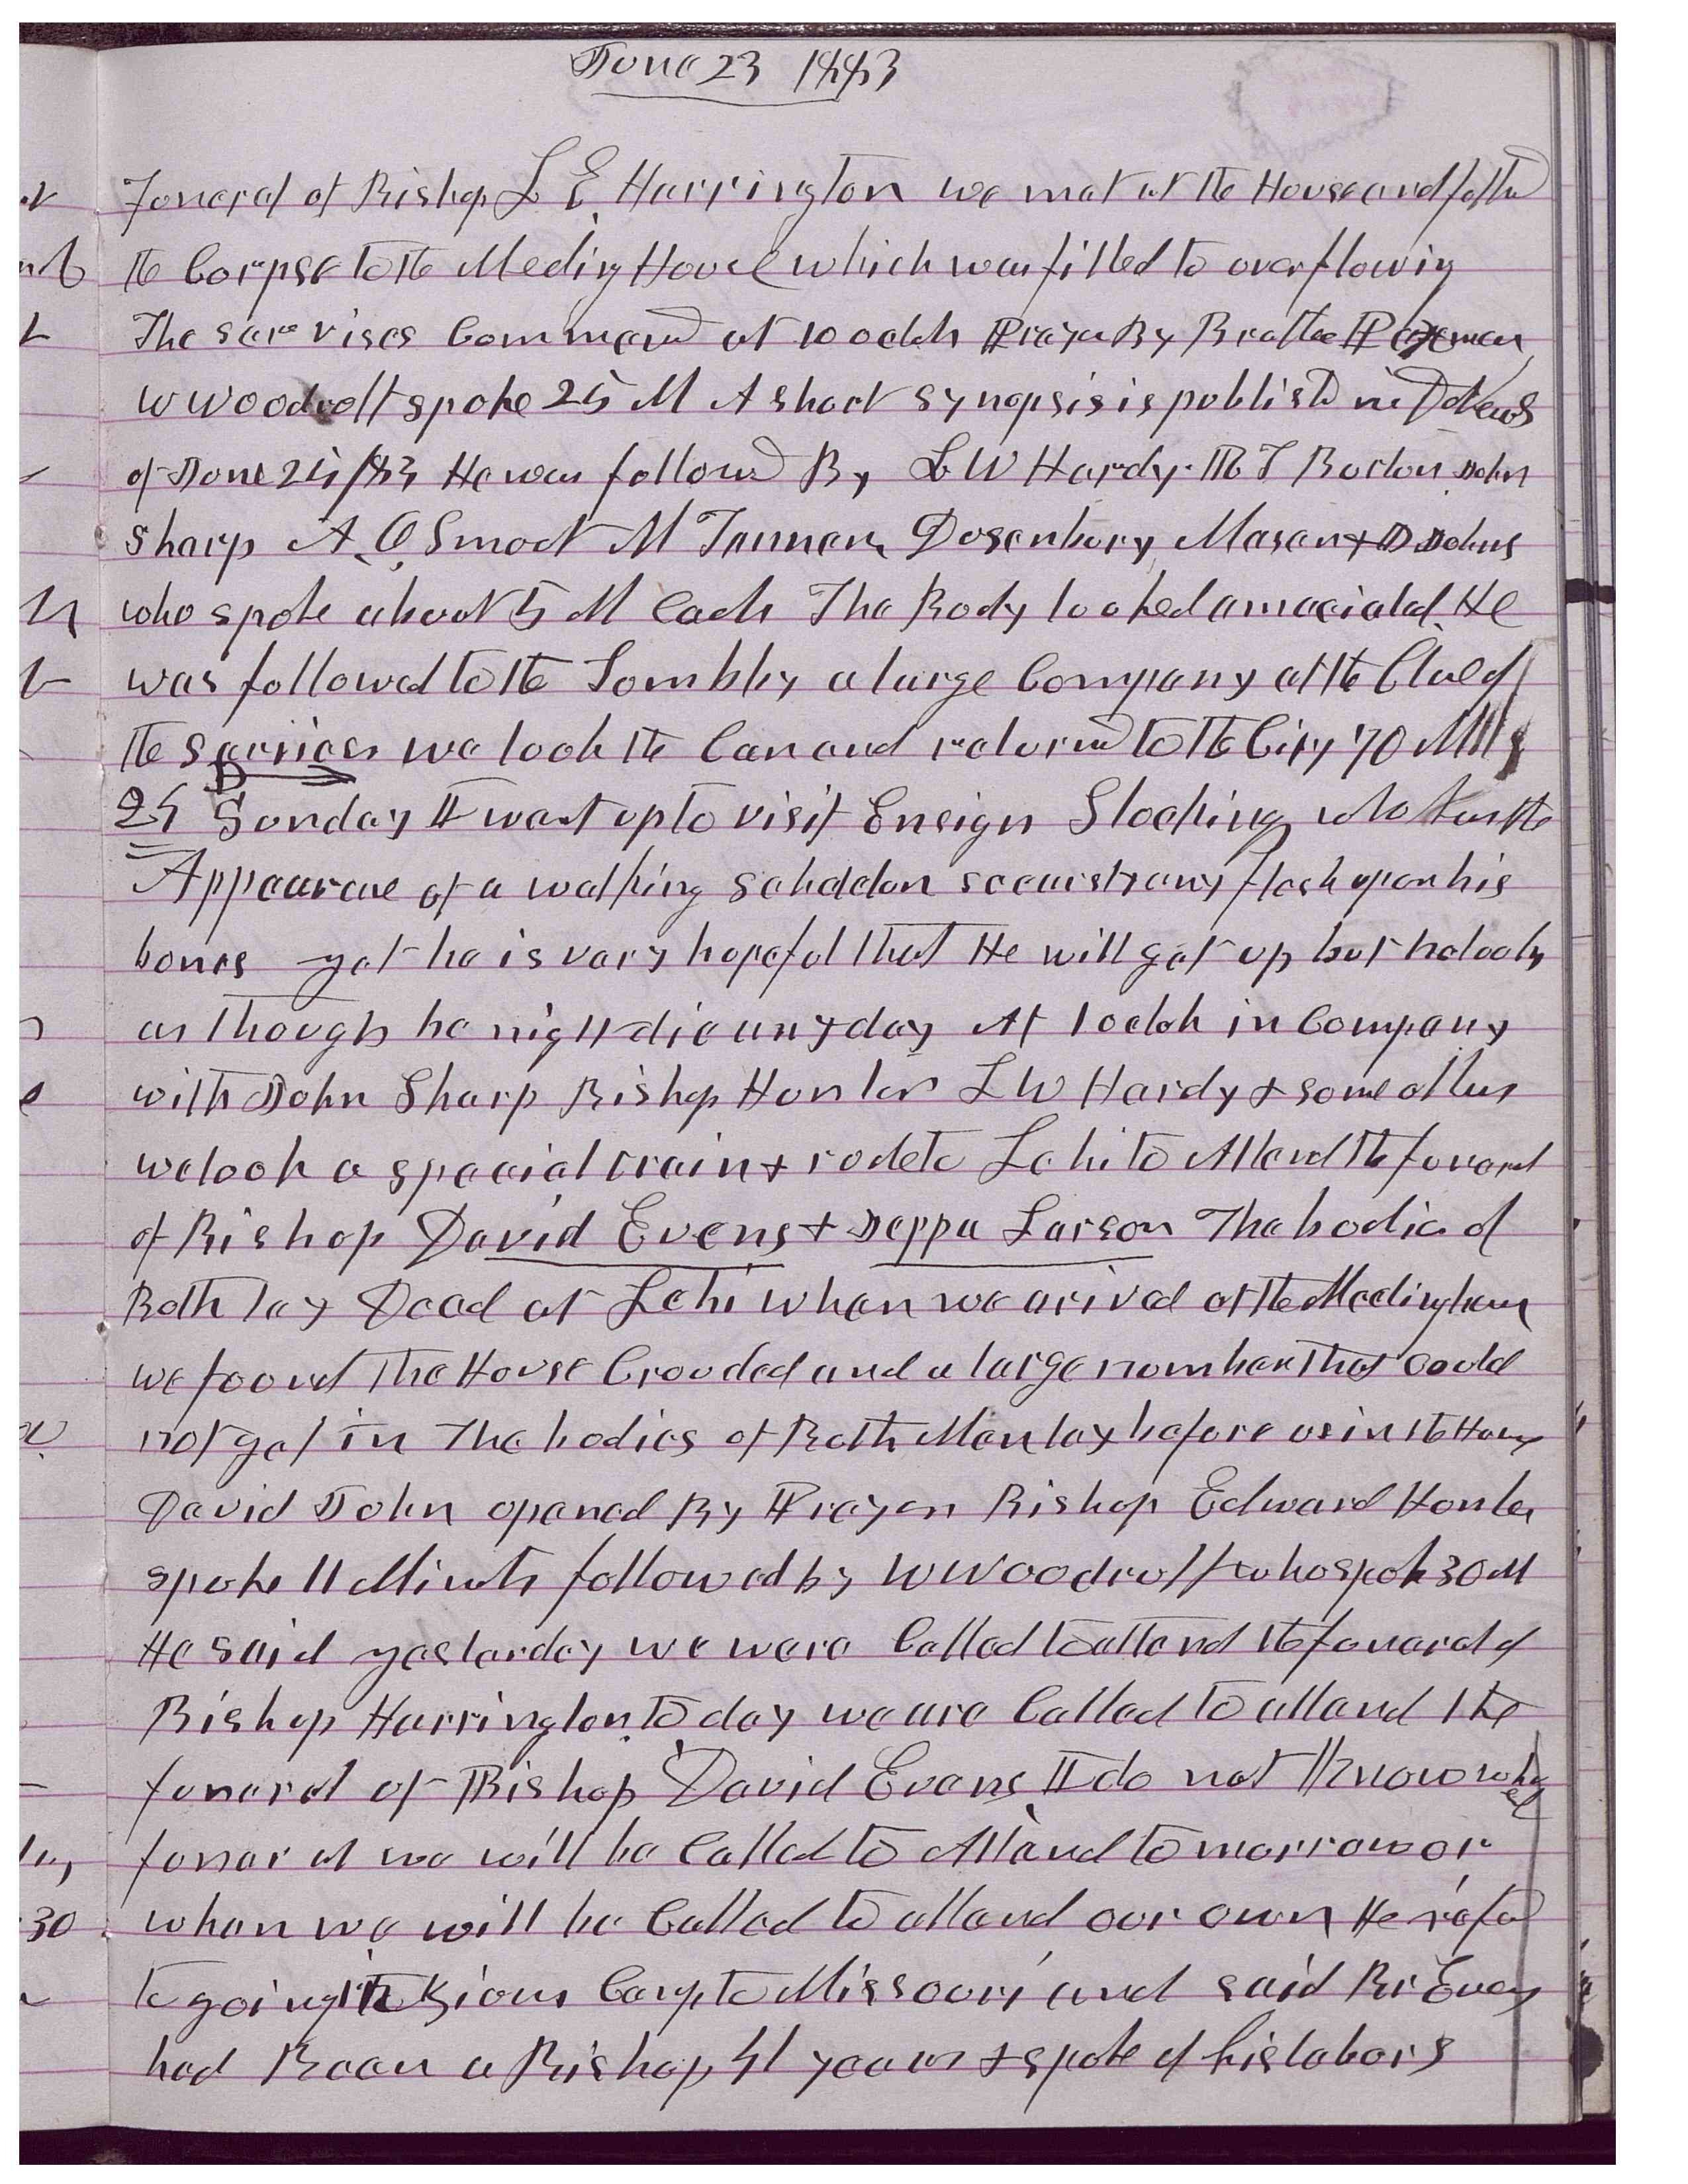 June 23 1883
Funeral of Bishop L E Harrington we met at the House and follwd
the Corpse to the Meeting House which was filled to overflowing
The servises Commencd at 10 oclok Prayer By Brother
W Woodruff spoke 25 M A short synopsis is publishd in D News
of June 25/83 He was followd By L W Hardy. R T Burton John
Sharp A. O. Smoot M Tanner, Dusenbury, Mason & D John
who spoke about 5 M Each The Body looked amaciated. He
was followed to the Tomb by a large Company at the Close of
the services we took the Car and returnd to the City 70 Mils
24 Sunday I went up to visit Ensign Stocking who has the
Appearance of a walking scheleton scearsly any flesh upon his
bones yet he is very hopeful that He will get up but he looks
as though he might die any day At 1 oclok in Company
with John Sharp Bishop Hunter L W Hardy & some others
we took a special train & rode to Lehi to Attend the funeral
of Bishop David Evens & Jeppa Larson The bodies of
Both lay Dead at Lehi when we arived at the Meetinghouse
we found The House Crouded and a large number that could
not get in The bodies of Both Men lay before us in the House
David John opened By Prayer Bishop Edward Hunter
spoke 11 Minuts followed by W Woodruff who spok 30 M
He said yesterday we were Called to attend the funeral of
Bishop Harrington, to day we are Called to attend the
funeral of Bishop David Evans, I do not Know whos
funeral we will be Called to Attend to morrow or
when we will be Called to attend our own He refered
to going in Zions Camp to Missouri and said Br Evens
had Been a Bishop 51 years & spoke of his labors